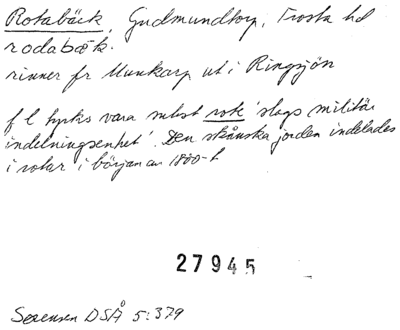 Rotabäck, Gudmundtorp, Frosta hd
rodabæk.
rinner fr Munkarp ut i Ringsjön
f l tycks vara subst rote 'slags militär
indelningsenhet'. Den skånska jorden indelades
i rotar i början av 1800-t
27945
Sørensen DSÅ 5:379